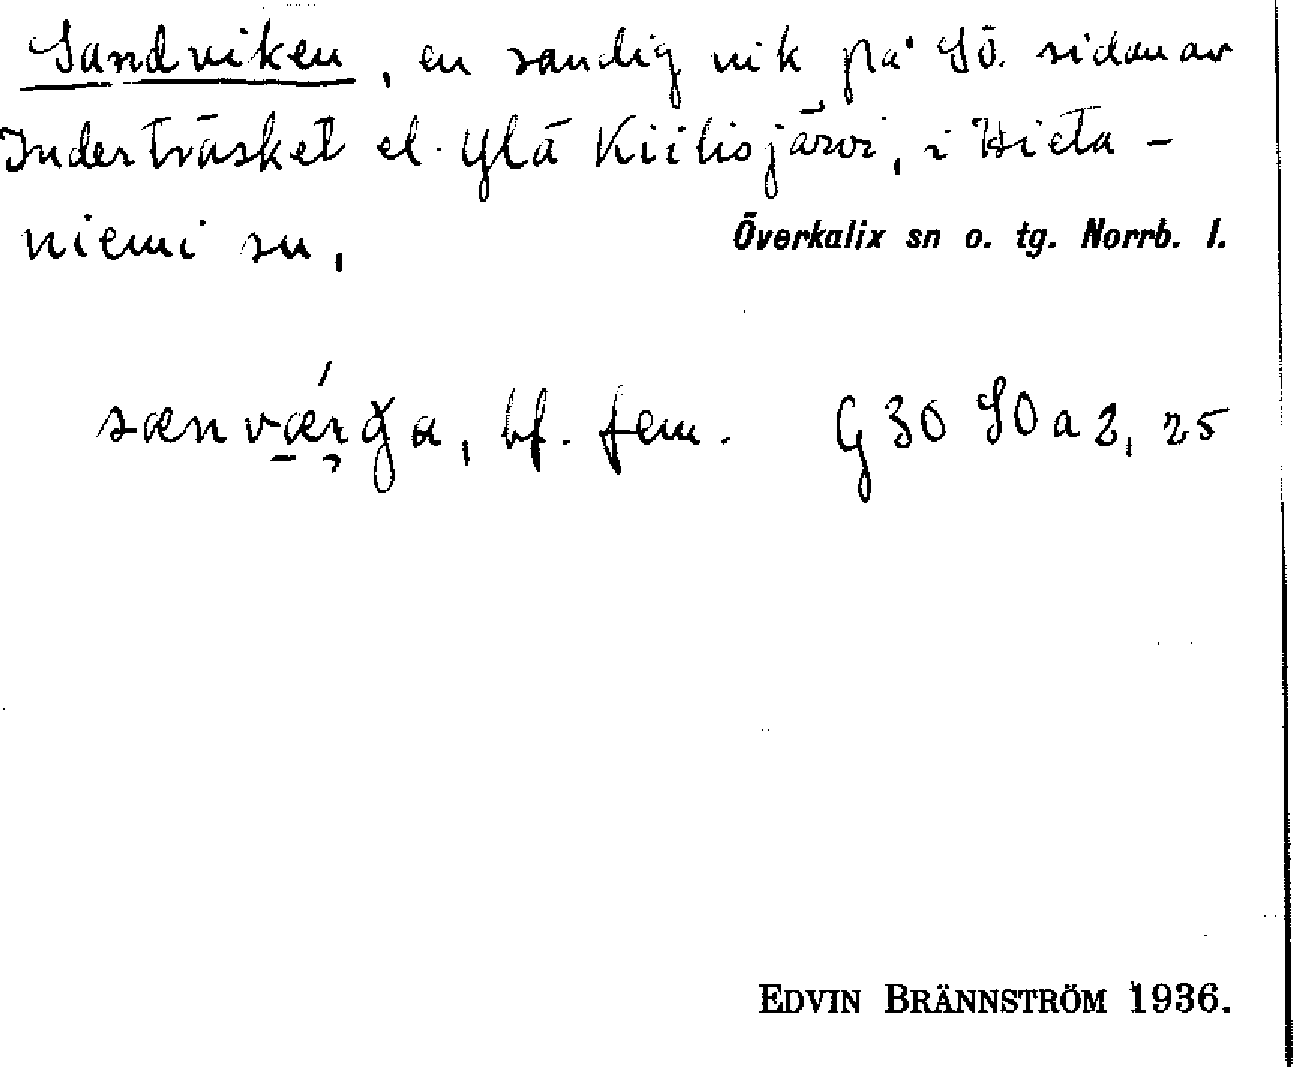 Sandviken, en sandig vik på Sö. sidan av
Inderträsket el. Ylä Kiilisjärvi, i Hieta-
niemi sn,
Överkalix sn o. tg. Norrb. l.
bf. fem. G 30 SO a 2, 25
EDVIN BRÄNNSTRÖM 1936.